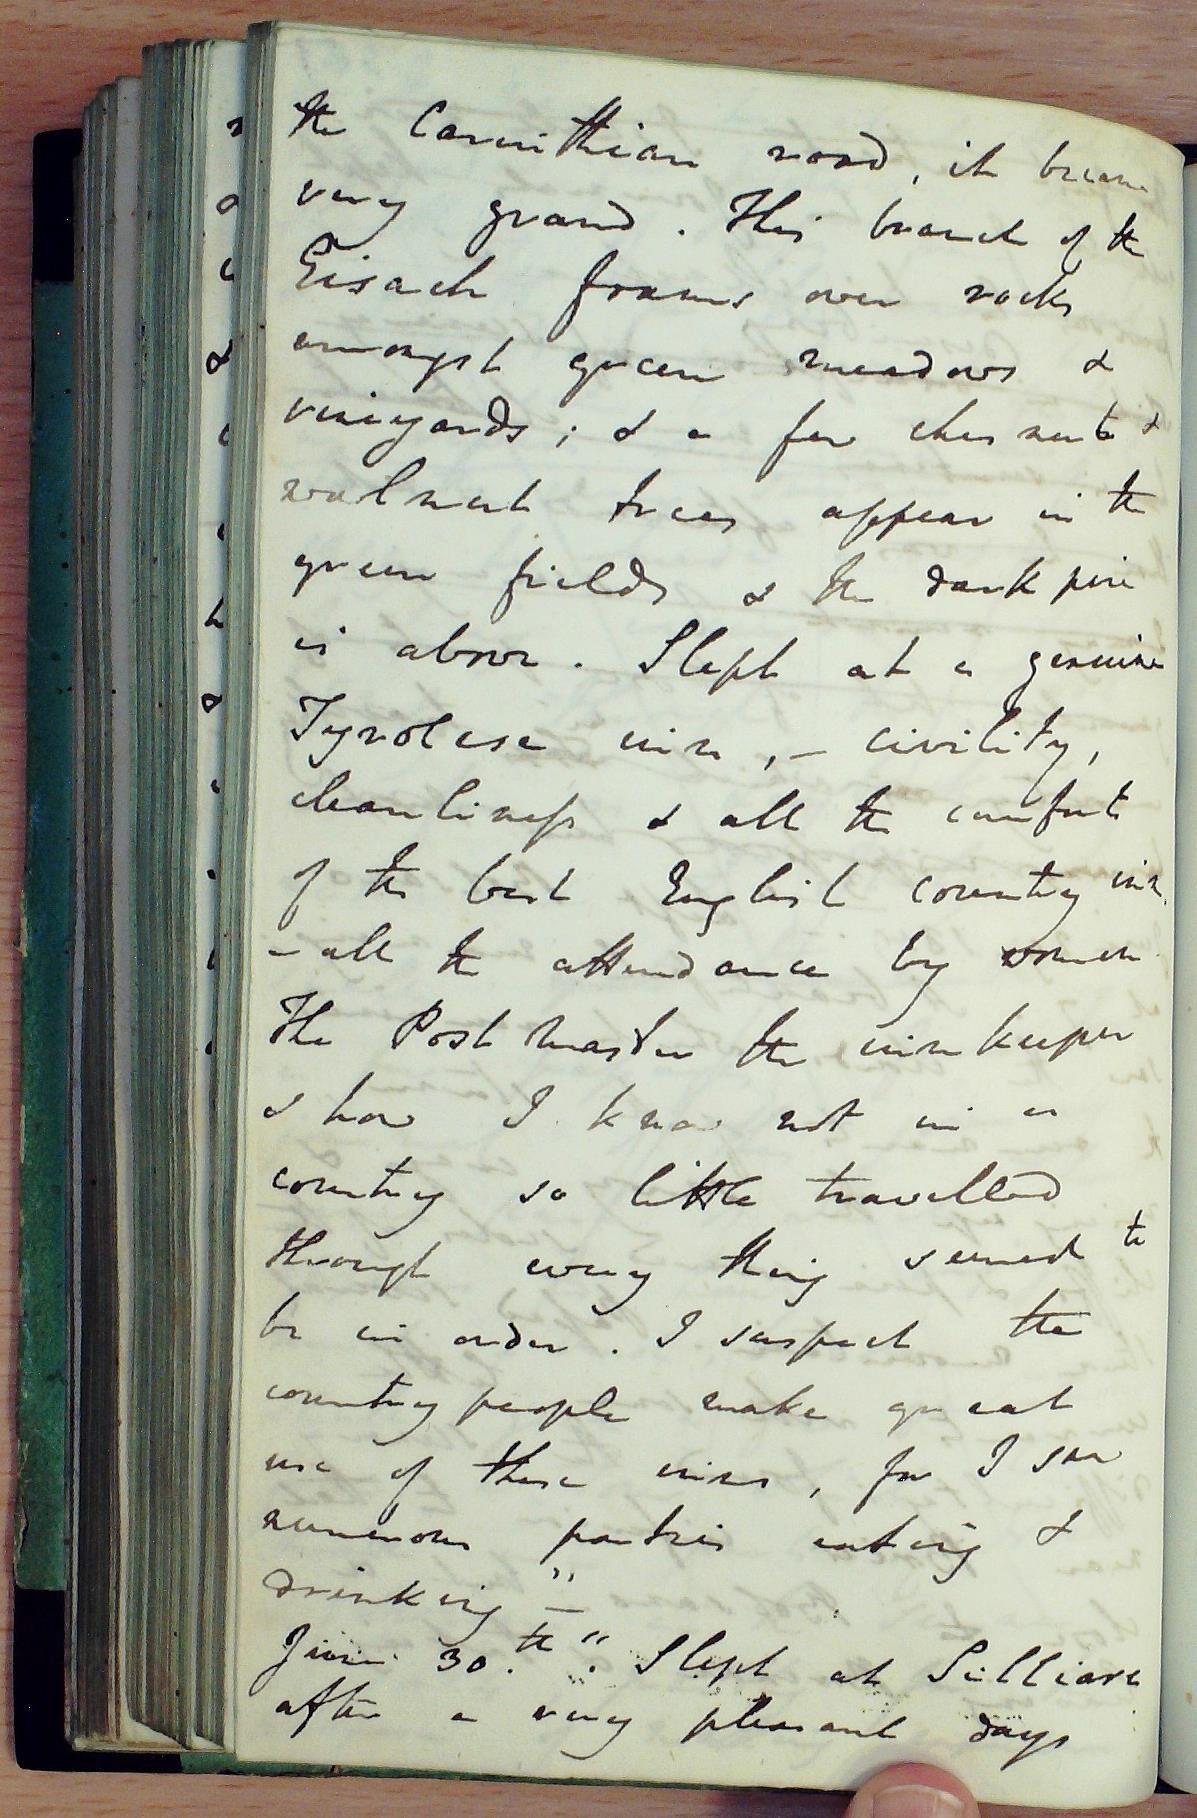 the Carinthian road, it became
very grand. This branch of the
Eisach foams over rocks
amongst green meadows &
vineyards; & a few chesnut &
walnut trees appear in the
green fields & the dark pine
is above. Slept at a genuine
Tyrolese inn, – civility,
cleanliness & all the comforts
of the best English country inn.
– all the attendance by women
The Post master the inn keeper
& how I know not in a
country so little travelled
through every thing seemed to
be in order. I suspect the
country people make great
use of these inns, for I saw
numerous parties eating &
drinking" –
June 30.th ". Slept at Silliare
after a very pleasant days